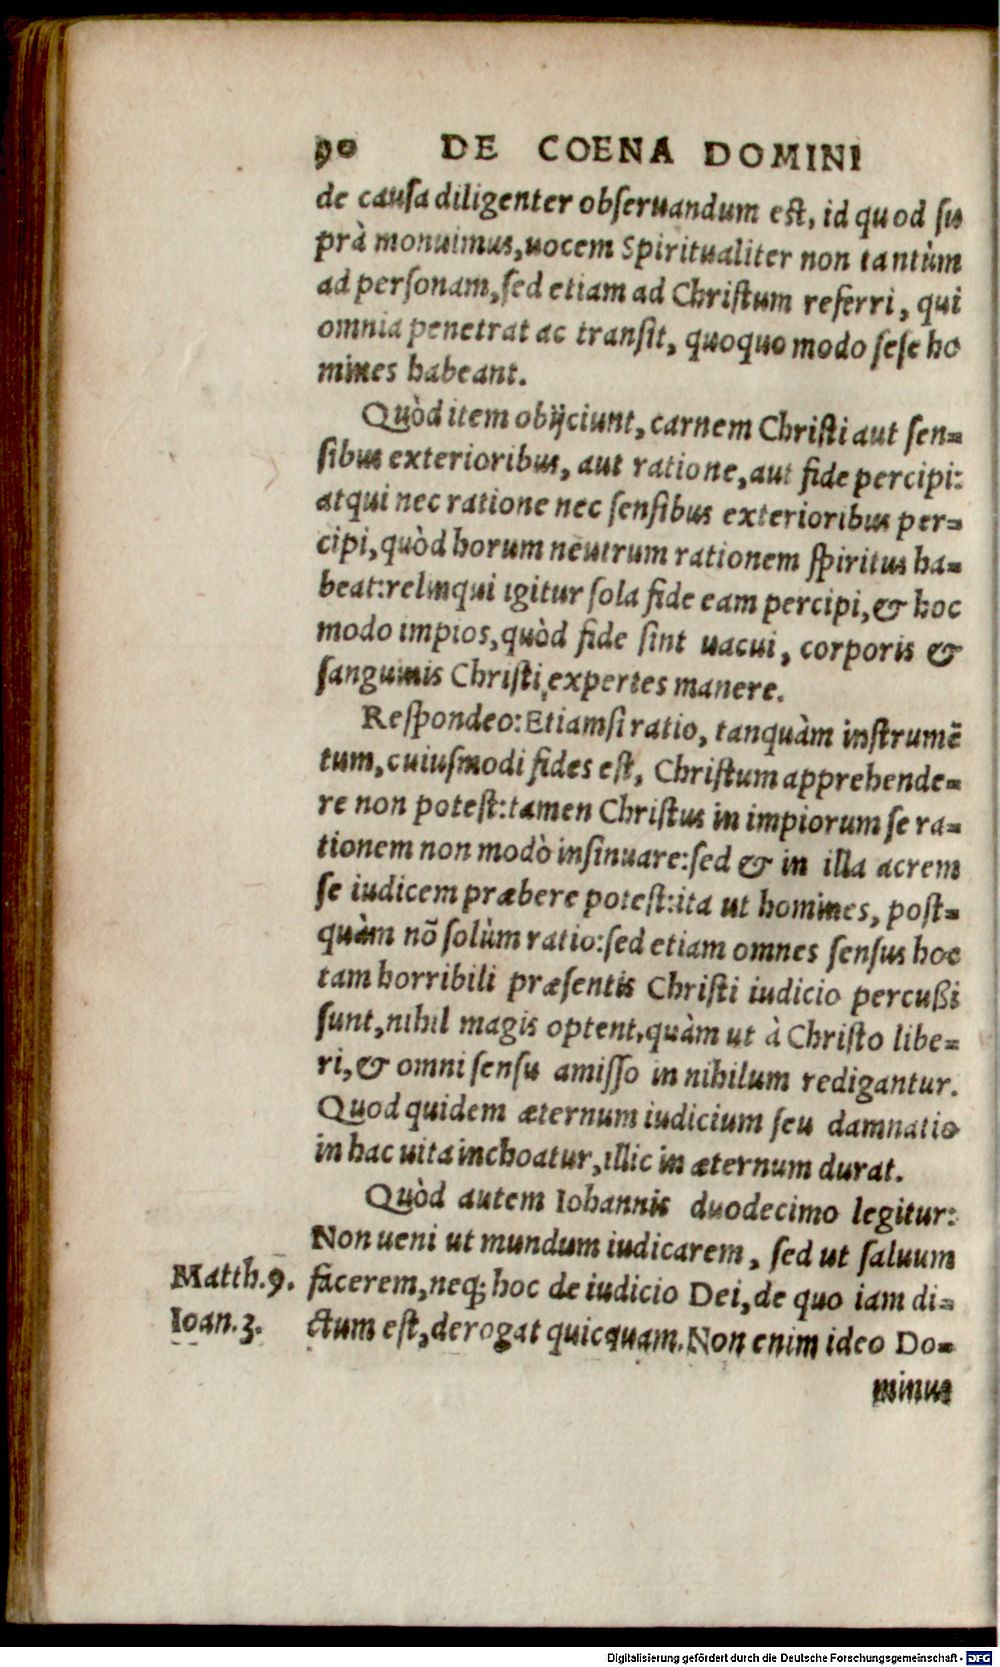 90 DE COENA DOMINI
de causa diligenter obſeruandum est, id quod ſu
prà monuimus, uocem Spiritualiter non tantùm
ad perſonam, ſed etiam ad Chriſtum referri, qui
omnia penetrat ac tranſit, quoquo modo ſeſe ho
mines habeant.
Quòd item obijciunt, carnem Chriſti aut ſen-
ſibus exterioribus, aut ratione, aut fide percipi:
atqui nec ratione nec ſenſibus exterioribus per-
cipi, quòd horum neutrum rationem ſpiritus ha-
beat: relinqui igitur ſola fide eam percipi, & hoc
modo impios, quòd fide ſint uacui, corporis &
ſanguinis Chriſti, expertes manere.
Reſpondeo: Etiamſi ratio, tanquàm inſtrumē
tum, cuiuſmodi fides eſt, Chriſtum apprehende-
re non poteſt: tamen Chriſtus in impiorum ſe ra-
tionem non modò inſinuare: ſed & in illa acrem
ſe iudicem præbere poteſt: ita ut homines, poſt-
quàm nō ſolùm ratio: ſed etiam omnes ſenſus hoc
tam horribili præſentis Chriſti iudicio percußi
ſunt, nihil magis optent, quàm ut à Chriſto libe-
ri, & omni ſenſu amiſſo in nihilum redigantur.
Quod quidem æternum iudicium ſeu damnatio
in hac uita inchoatur, illic in æternum durat.
Quòd autem Iohannis duodecimo legitur:
Non ueni ut mundum iudicarem, ſed ut ſaluum
Matth. 9. facerem, neq; hoc de iudicio Dei, de quo iam di-
Ioan. 3. ctum eſt, derogat quicquam. Non enim ideo Do-
minus
Digitalisierung gefördert durch die Deutsche Forschungsgemeinschaft - DFG